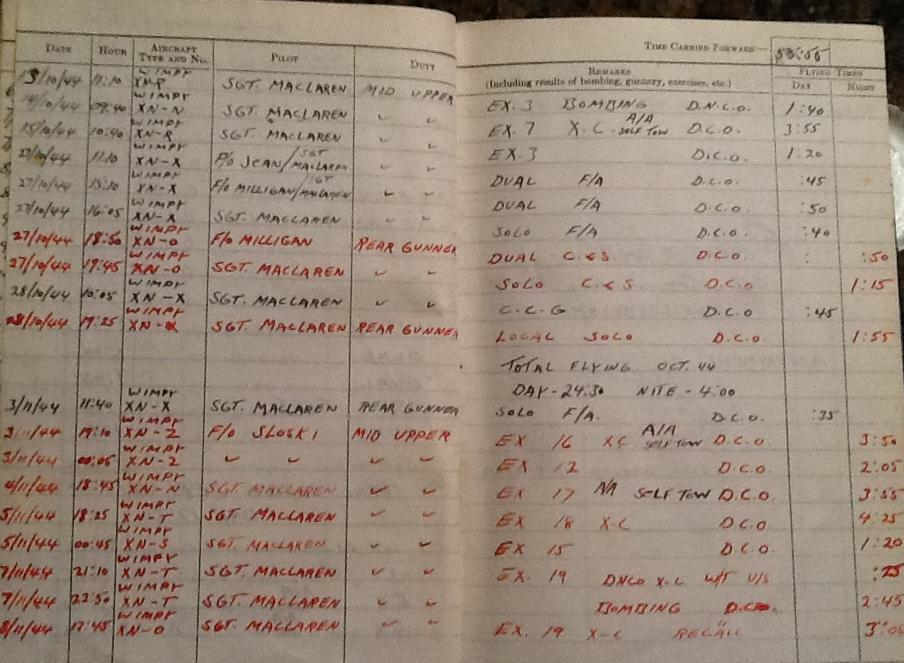 TIME CARRIED FORWARD— 53:55
DATE HOUR AIRCRAFT TYPE AND NO. PILOT DUTY REMARKS (Including results of bombing, gunnery, exercises, etc.) FLYING TIMES DAY NIGHT
13/10/44 11:10 WIMPY XN-R SGT. MACLAREN MID UPPER EX. 3 BOMBING D.N.C.O. 1:40
14/10/44 09:40 WIMPY XN-N SGT. MACLAREN " " EX. 7 X.C. A/A SELF TOW D.C.O. 3:55
15/10/44 10:40 WIMPY XN-R SGT. MACLAREN " " EX. 3 D.C.O. 1:20
11:10 WIMPY XN-X P/O JEAN/SGT MACLAREN DUAL F/A D.C.O. :45
27/10/44 15:10 WIMPY XN-X F/O MILLIGAN/SGT MACLAREN " " DUAL F/A D.C.O. :50
27/10/44 16:05 WIMPY XN-X SGT. MACLAREN " " SOLO F/A D.C.O. :40
27/10/44 18:50 WIMPY XN-O F/O MILLIGAN REAR GUNNER DUAL C.&S D.C.O. :50
27/10/44 19:45 WIMPY XN-O SGT. MACLAREN " " SOLO C.&S D.C.O 1:15
28/10/44 10:05 WIMPY XN-X SGT. MACLAREN " " C.C.G D.C.O :45
28/10/44 19:25 WIMPY SGT. MACLAREN REAR GUNNER LOCAL SOLO D.C.O. 1:55
TOTAL FLYING OCT. 44
DAY-24:30 NITE-4:00
3/11/44 11:40 WIMPY XN-X SGT. MACLAREN REAR GUNNER SOLO F/A. D.C.O. :35
3/11/44 19:10 WIMPY XN-Z F/O SLOSKI MID UPPER EX 16 X.C A/A SELF TOW D.C.O. 3:50
3/11/44 00:05 WIMPY XN-Z " " " " EX 12 D.C.O. 2:05
4/11/44 18:45 WIMPY XN-N SGT. MACLAREN " " EX 17 A/A SELF TOW D.C.O. 3:55
5/11/44 18:25 WIMPY XN-T SGT. MACLAREN " " EX 18 X-C D.C.O 4:25
5/11/44 00:45 WIMPY XN-S SGT. MACLAREN " " EX 15 D.C.O. 1:20
7/11/44 21:10 WIMPY XN-T SGT. MACLAREN " " EX. 19 DNCO X.C W/T U/S
7/11/44 22:50 WIMPY XN-T SGT. MACLAREN " " BOMBING D.C.O. 2:45
8/11/44 17:45 WIMPY XN-O SGT. MACLAREN " " EX. 19 X-C RECALL